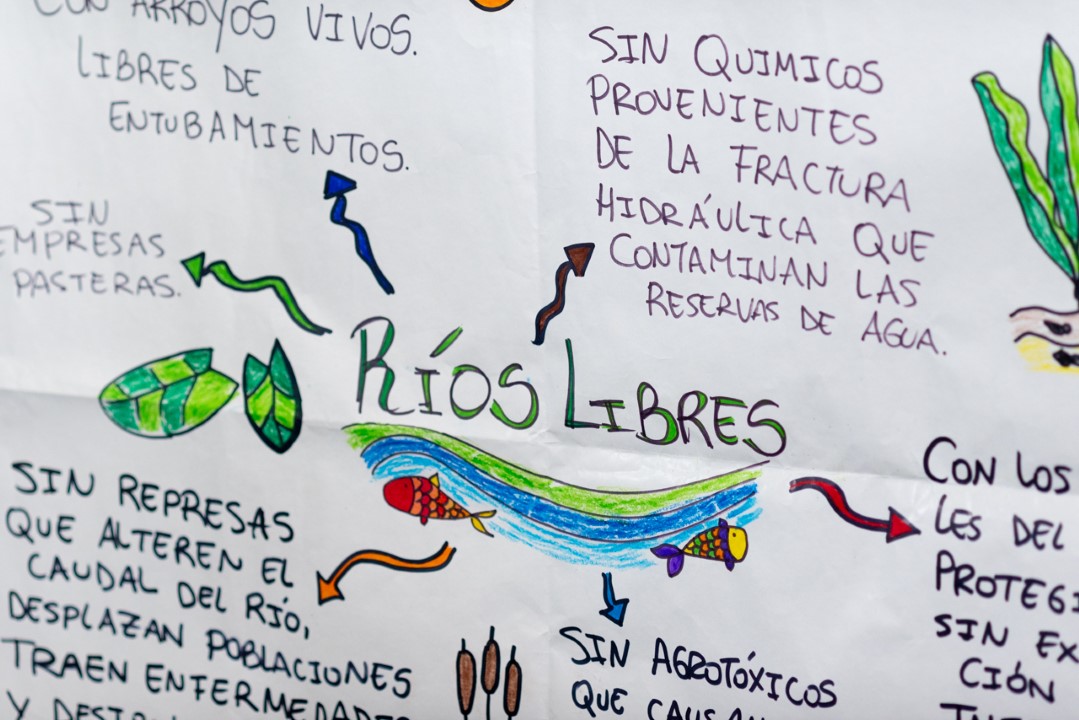 CON ARROYOS VIVOS.
LIBRES DE
ENTUBAMIENTOS.
SIN QUIMICOS
PROVENIENTES
DE LA FRACTURA
HIDRÁULICA QUE
CONTAMINAN LAS
RESERVAS DE AGUA.
SIN
EMPRESAS
PASTERAS.
RÍOS LIBRES
SIN REPRESAS
QUE ALTEREN EL
CAUDAL DEL RÍO,
DESPLAZAN POBLACIONES
TRAEN ENFERMEDADES
Y
SIN AGROTÓXICOS
QUE
CON LOS
LES DEL
PROTEGI
SIN EX
CIÓN